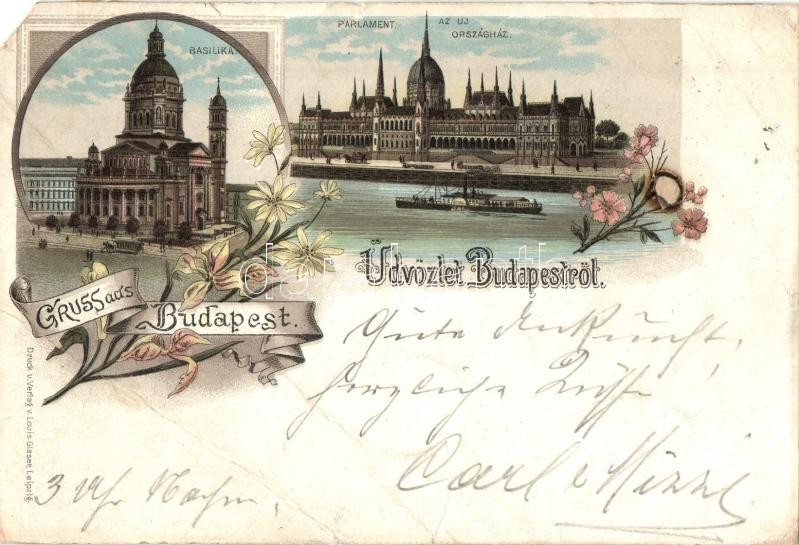 BASILIKA.
PARLAMENT.
AZ UJ
ORSZÁGHÁZ.
Üdvözlet Budapestről.
GRUSS aus
Budapest.
Druck u. Verlag v. Louis Glaser, Leipzig.
Gute Ankunft,
herzliche Küsse
Carl u Mizzi
3 Uhr Nachm.